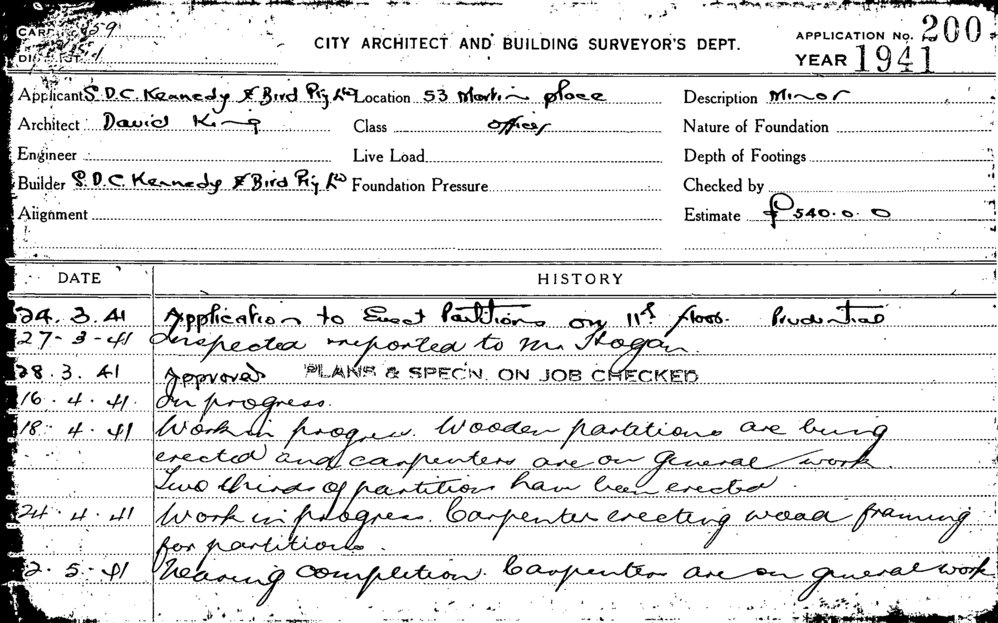 CARD 59
CITY ARCHITECT AND BUILDING SURVEYOR'S DEPT.
APPLICATION No. 200
YEAR 1941
DISTRICT
Applicant S.D.C. Kennedy & Bird Pty Ltd Location 53 Martin place Description Minor
Architect David King Class offices Nature of Foundation
Engineer Live Load Depth of Footings
Builder S.D.C. Kennedy & Bird Pty Ltd Foundation Pressure Checked by
Alignment Estimate £540.0.0
DATE HISTORY
24.3.41 Application to Erect Partitions on 11th floor. Prudential
27-3-41 Inspected & reported to Mr Hogan.
28.3.41 Approved PLANS & SPECN. ON JOB CHECKED
16.4.41. In progress.
18.4.41 Work in progress. Wooden partitions are being
erected and carpenters are on general work.
Two thirds of partitions have been erected.
24.4.41 Work in progress. Carpenters erecting wood framing
for partitions.
2.5.41 Nearing completion. Carpenters are on general work